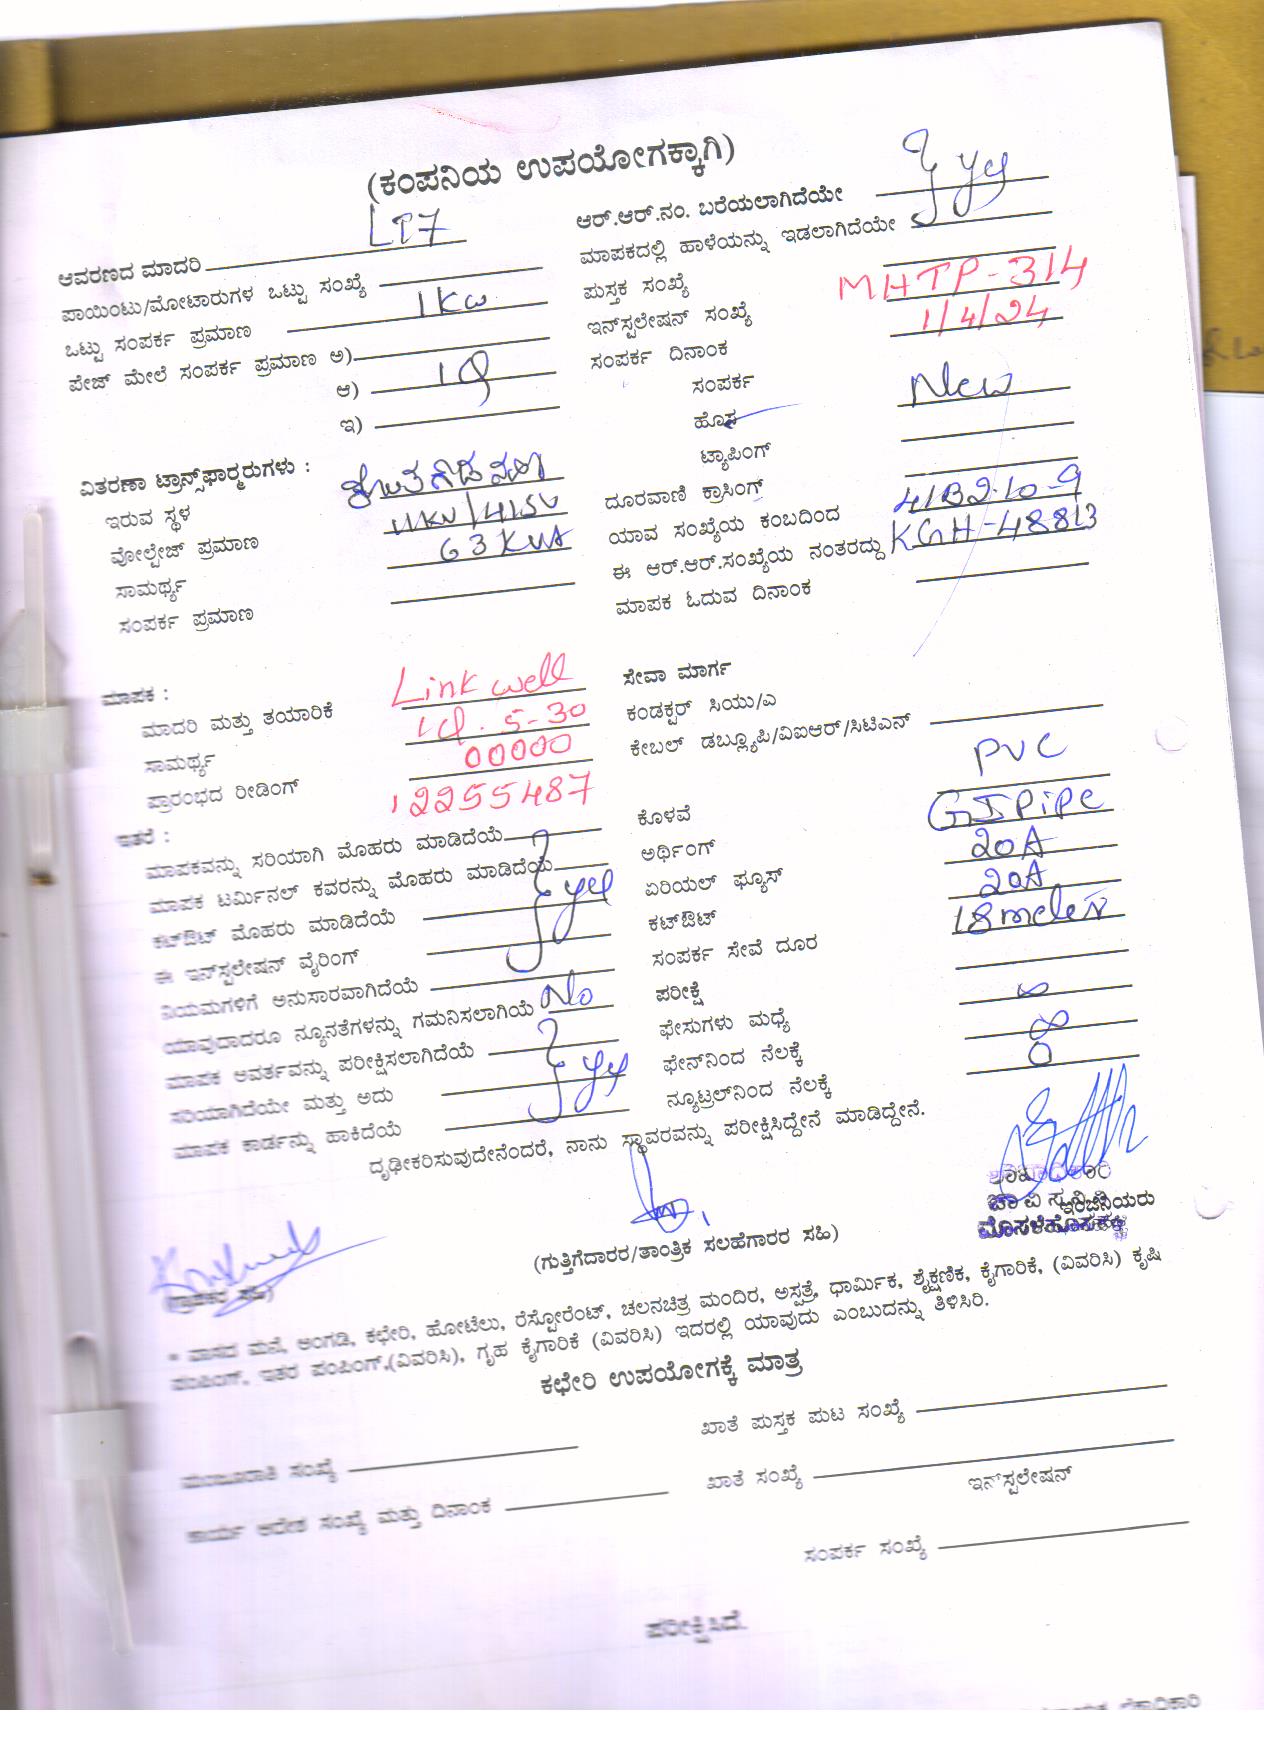 (ಕಂಪನಿಯ ಉಪಯೋಗಕ್ಕಾಗಿ)
ಆವರಣದ ಮಾದರಿ LT7
ಪಾಯಿಂಟು/ಮೋಟಾರುಗಳ ಒಟ್ಟು ಸಂಖ್ಯೆ
ಒಟ್ಟು ಸಂಪರ್ಕ ಪ್ರಮಾಣ 1kw
ಪೇಜ್ ಮೇಲೆ ಸಂಪರ್ಕ ಪ್ರಮಾಣ ಅ)
ಆ)
ಇ)
ಆರ್.ಆರ್.ನಂ. ಬರೆಯಲಾಗಿದೆಯೇ
ಮಾಪಕದಲ್ಲಿ ಹಾಳೆಯನ್ನು ಇಡಲಾಗಿದೆಯೇ } yes
ಪುಸ್ತಕ ಸಂಖ್ಯೆ
ಇನ್‌ಸ್ಟಲೇಷನ್ ಸಂಖ್ಯೆ MHTP-314
ಸಂಪರ್ಕ ದಿನಾಂಕ 1/4/24
ಸಂಪರ್ಕ
ಹೊಸ New
ಟ್ಯಾಪಿಂಗ್
ದೂರವಾಣಿ ಕ್ರಾಸಿಂಗ್
ಯಾವ ಸಂಖ್ಯೆಯ ಕಂಬದಿಂದ
ಈ ಆರ್.ಆರ್.ಸಂಖ್ಯೆಯ ನಂತರದ್ದು KGH-48813
ಮಾಪಕ ಓದುವ ದಿನಾಂಕ
ವಿತರಣಾ ಟ್ರಾನ್ಸ್‌ಫಾರ್‍ಮರುಗಳು :
ಇರುವ ಸ್ಥಳ
ವೋಲ್ಟೇಜ್ ಪ್ರಮಾಣ 11KV/415V
ಸಾಮರ್ಥ್ಯ 63 KVA
ಸಂಪರ್ಕ ಪ್ರಮಾಣ
ಮಾಪಕ :
ಮಾದರಿ ಮತ್ತು ತಯಾರಿಕೆ Link well
ಸಾಮರ್ಥ್ಯ 5-30
ಪ್ರಾರಂಭದ ರೀಡಿಂಗ್ 00000
12255487
ಇತರೆ :
ಮಾಪಕವನ್ನು ಸರಿಯಾಗಿ ಮೊಹರು ಮಾಡಿದೆಯೆ
ಮಾಪಕ ಟರ್ಮಿನಲ್ ಕವರನ್ನು ಮೊಹರು ಮಾಡಿದೆಯೆ
ಕಟ್‌ಔಟ್ ಮೊಹರು ಮಾಡಿದೆಯೆ } yes
ಈ ಇನ್‌ಸ್ಟಲೇಷನ್ ವೈರಿಂಗ್
ನಿಯಮಗಳಿಗೆ ಅನುಸಾರವಾಗಿದೆಯೆ
ಯಾವುದಾದರೂ ನ್ಯೂನತೆಗಳನ್ನು ಗಮನಿಸಲಾಗಿಯೆ No
ಮಾಪಕ ಆವರ್ತವನ್ನು ಪರೀಕ್ಷಿಸಲಾಗಿದೆಯೆ
ಸರಿಯಾಗಿದೆಯೇ ಮತ್ತು ಅದು } yes
ಮಾಪಕ ಕಾರ್ಡನ್ನು ಹಾಕಿದೆಯೆ
ಸೇವಾ ಮಾರ್ಗ
ಕಂಡಕ್ಟರ್ ಸಿಯು/ಎ
ಕೇಬಲ್ ಡಬ್ಲ್ಯೂಪಿ/ವಿಐಆರ್/ಸಿಟಿಎನ್
PVC
ಕೊಳವೆ GI Pipe
ಅರ್ಥಿಂಗ್ 20A
ಏರಿಯಲ್ ಫ್ಯೂಸ್ 20A
ಕಟ್‌ಔಟ್ 18 meter
ಸಂಪರ್ಕ ಸೇವೆ ದೂರ
ಪರೀಕ್ಷೆ
ಫೇಸುಗಳು ಮಧ್ಯೆ
ಫೇನ್‌ನಿಂದ ನೆಲಕ್ಕೆ
ನ್ಯೂಟ್ರಲ್‌ನಿಂದ ನೆಲಕ್ಕೆ
ದೃಢೀಕರಿಸುವುದೇನೆಂದರೆ, ನಾನು ಸ್ಥಾವರವನ್ನು ಪರೀಕ್ಷಿಸಿದ್ದೇನೆ ಮಾಡಿದ್ದೇನೆ.
ಶಾಖಾಧಿಕಾರಿ
ಚಾ ವಿ ಸ ನಿ ನಿ
ಇಂಜಿನಿಯರು
ಮೊಸಳೆಹೊಸಹಳ್ಳಿ
(ಗ್ರಾಹಕರ ಸಹಿ)
(ಗುತ್ತಿಗೆದಾರರ/ತಾಂತ್ರಿಕ ಸಲಹೆಗಾರರ ಸಹಿ)
* ವಾಸದ ಮನೆ, ಅಂಗಡಿ, ಕಛೇರಿ, ಹೋಟೆಲು, ರೆಸ್ಟೋರೆಂಟ್, ಚಲನಚಿತ್ರ ಮಂದಿರ, ಅಸ್ಪತ್ರೆ, ಧಾರ್ಮಿಕ, ಶೈಕ್ಷಣಿಕ, ಕೈಗಾರಿಕೆ, (ವಿವರಿಸಿ) ಕೃಷಿ
ಪಂಪಿಂಗ್, ಇತರ ಪಂಪಿಂಗ್,(ವಿವರಿಸಿ), ಗೃಹ ಕೈಗಾರಿಕೆ (ವಿವರಿಸಿ) ಇದರಲ್ಲಿ ಯಾವುದು ಎಂಬುದನ್ನು ತಿಳಿಸಿರಿ.
ಕಛೇರಿ ಉಪಯೋಗಕ್ಕೆ ಮಾತ್ರ
ಮಂಜೂರಾತಿ ಸಂಖ್ಯೆ
ಖಾತೆ ಪುಸ್ತಕ ಪುಟ ಸಂಖ್ಯೆ
ಕಾರ್ಯ ಆದೇಶ ಸಂಖ್ಯೆ ಮತ್ತು ದಿನಾಂಕ
ಖಾತೆ ಸಂಖ್ಯೆ
ಇನ್‌ಸ್ಟಲೇಷನ್
ಸಂಪರ್ಕ ಸಂಖ್ಯೆ
ಪರೀಕ್ಷಿಸಿದೆ.